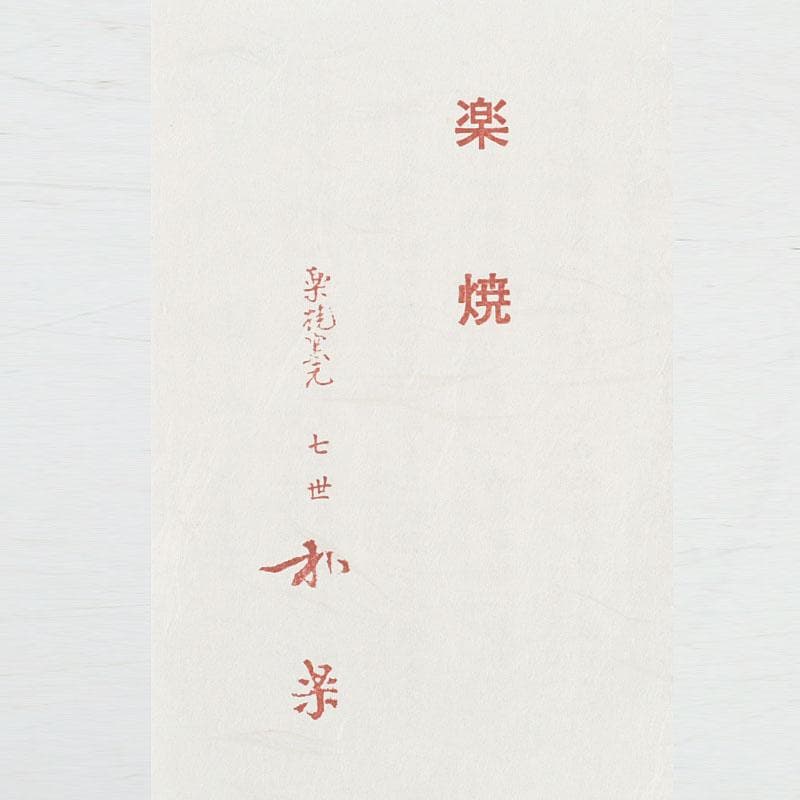 楽焼
楽焼窯元 七世 和楽